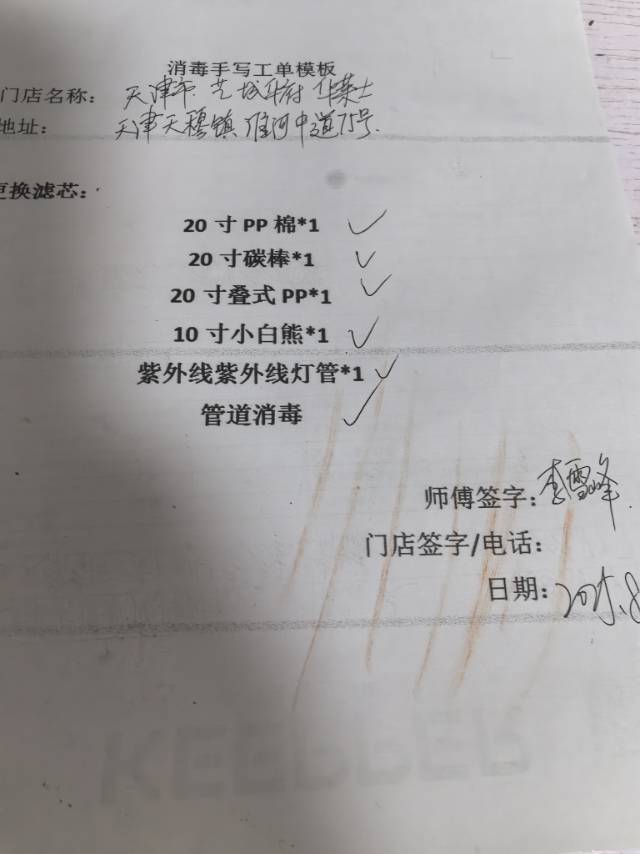 消毒手写工单模板
门店名称： 天津市 艺城 华莱士
地址： 天津天穆镇 淮河中道75号
更换滤芯：
20 寸 PP 棉*1 ✓
20 寸碳棒*1 ✓
20 寸叠式 PP*1 ✓
10 寸小白熊*1 ✓
紫外线紫外线灯管*1 ✓
管道消毒 ✓
师傅签字：李雪峰
门店签字/电话：
日期：2025.8
KEEPPER